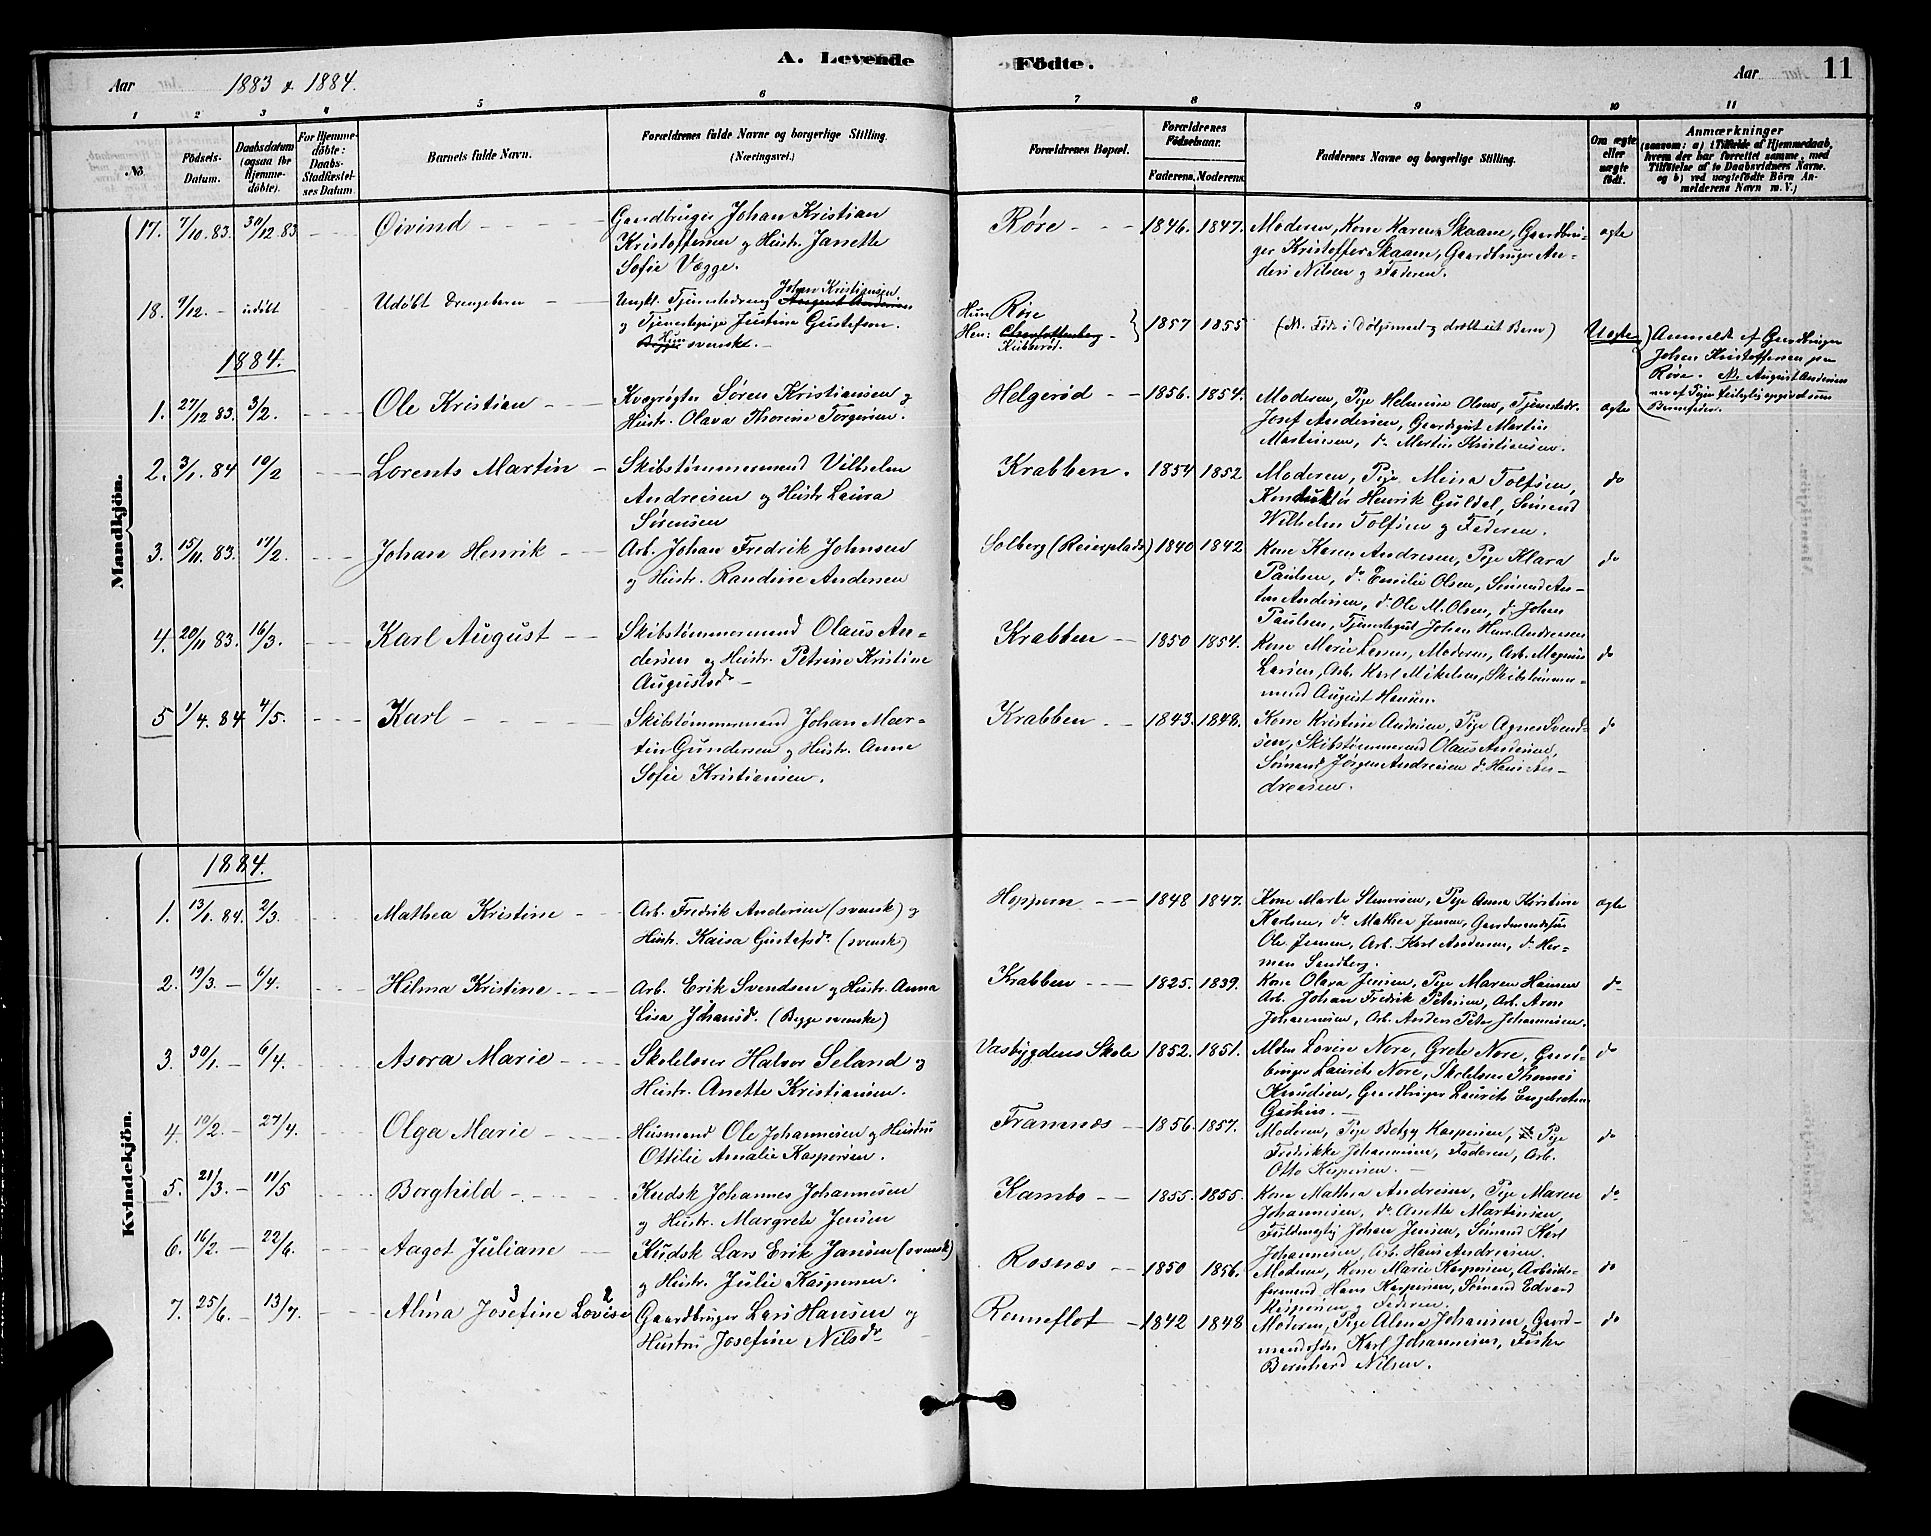 A. Levende Fødte.
Aar 1883 & 1884.
Aar 11
1 2 3 4 5 6 7 8 9 10 11
No
Fødsels-Datum.
Daabsdatum (ogsaa for Hjemmedøbte).
For Hjemmedøbte: Daabs-Stadfæstelses Datum.
Barnets fulde Navn.
Forældrenes fulde Navne og borgerlige Stilling. (Næringsvei.)
Forældrenes Bopæl.
Forældrenes Fødselsaar.
Faderens. Moderens.
Faddernes Navne og borgerlige Stilling.
Om ægte eller uægte født.
Anmærkninger
(saasom: a) i Tilfælde af Hjemmedaab, hvem der har forrettet samme, med Tilføielse af to Daabsvidners Navne. og b) ved uægtefødte Børn Anmelderens Navn m. V.)
Mandkjön.
17. 7/10. 83. 30/12. 83 Øivind Gaardbruger Johan Kristian Røre 1846. 1847. Moderen, Kone Karen Skaane, Gaardbru- ægte
Kristoffersen og Hustr. Janette ger Kristoffer Skaane, Gaardbruger An-
Sofie Vægge. ders Nilsen og Faderen.
18. 7/12. - udøbt Udøbt Drengebarn Ungkl. Tjenestedreng August Andersen Johan Kristiansen Hun Røre 1857 1855 Uægte Anmeldt af Gaardbruger
og Tjenestepige Justine Gustafsen. Han: Charlottenborg Kubberød. Johan Kristoffersen paa
Begge Hun svenske. Røre. NB. August Andersen
1884.
1. 27/12 83. 3/2. Ole Kristian Kvægrøgter Søren Kristiansen og Helgerød 1856. 1854. Moderen, Pige Helmine Olsen, Tjenestedr. ægte
Hustr. Olava Thorine Torgersen. Josef Andersen, Gaardsgut Martin
Martinsen, do Martin Kristiansen.
2. 3/1. 84 10/2 Lorents Martin Skibstømmermand Vilhelm Krabben. 1854 1852 Moderen, Pige Mina Tolfsen, do
Andreisen og Hustr Laura Konduktør Henrik Guldal, Sømand
Sørensen Wilhelm Tolfsen og Faderen.
3. 15/11. 83. 17/2. Johan Henrik Arb. Johan Fredrik Johnsen Solberg (Reierplads) 1840 1842 Kone Karen Andresen, Pige Klara do
og Hustr. Randine Andersen Paulsen, do Emilie Olsen, Sømand An-
ton Andersen, do Ole M. Olsen, do Johan
Paulsen, Tjenestegut Johan Hans Andreasen
4. 20/11 83. 16/3. Karl August Skibstømmermand Olaus An- Krabben 1850 1854. Kone Marie Larsen, Moderen, Arb. Magnus do
dersen og Hustr. Petrine Kristine Larsen, Arb. Karl Mikelsen, Skibstømmer-
Augustsdr. mand August Hansen.
5 1/4. 84 4/5. Karl Skibstømmermand Johan Mar- Krabben 1843. 1848. Kone Kristine Andersen, Pige Agnes Svend- do
tin Gundersen og Hustr. Anne sen, Skibstømmermand Olaus Andersen,
Sofie Kristiansen. Sømand Jørgen Andreisen do Hans An-
dreasen.
Kvindekjön.
1884.
1. 13/1. 84. 2/3. Mathea Kristine Arb. Fredrik Andersen (svensk) og Hoppern 1848 1847. Kone Marte Stenersen, Pige Anna Kirstine ægte
Hustr. Kaisa Gustafsdr. (svensk) Karlsen, do Mathea Jensen, Gaardmandssøn
Ole Jensen, Arb. Karl Andersen, do Her-
man Sandberg.
2. 19/3. - 6/4. Hilma Kristine Arb. Erik Svendsen og Hustr. Anna Krabben 1825. 1839. Kone Olava Jensen, Pige Maren Hansen do
Lisa Johansdr. (Begge svenske) Arb. Johan Fredrik Petersen, Arb. Arne
Johannesen, Arb. Anders Peter Johannesen.
3. 30/1. - 6/4. Asora Marie Skolelærer Halvor Seland og Vasbygdens Skole 1852. 1851. Alder Lovise Nore, Grete Nore, Gaard- do
Hustr. Anette Kristiansen. bruger Laurits Nore, Skolelærer Thomas
Knudsen, Gaardbruger Laurits Engebretsen
4. 10/2. - 27/4. Olga Marie Husmand Ole Johannesen og Hustru Framnæs 1856. 1857. Moderen, Pige Betzy Kaspersen, Pige do
Ottilie Amalie Kaspersen. Fredrikke Johannesen, Faderen, Arb.
Otto Kaspersen.
5. 21/3. - 11/5 Borghild Kudsk Johannes Johannesen Kambo 1855. 1855. Kone Mathea Andreisen, Pige Maren do
og Hustr. Margrete Jensen Johannesen, do Anette Martinsen,
Fuldmægtig Johan Jensen, Sømand Karl
Johannesen, Arb. Hans Andreasen.
6. 16/2. - 22/6. Aagot Juliane Kudsk Lars Erik Jansen (svensk) Rosnæs 1850 1856. Moderen, Kone Marie Kaspersen, Arbeids- do
og Hustr. Julie Kaspersen. formand Hans Kaspersen, Sømand Edvard
Kaspersen og Faderen.
7. 25/6. - 13/7. Alma Josefine 3 Lovise 2 Gaardbruger Lars Hansen og Renneflot 1842 1848 Moderen, Pige Alma Johansen, Gaard- do
Hustru Josefine Nilsdr. mandssøn Karl Johannesen, Fisker
Bernhard Nilsen.